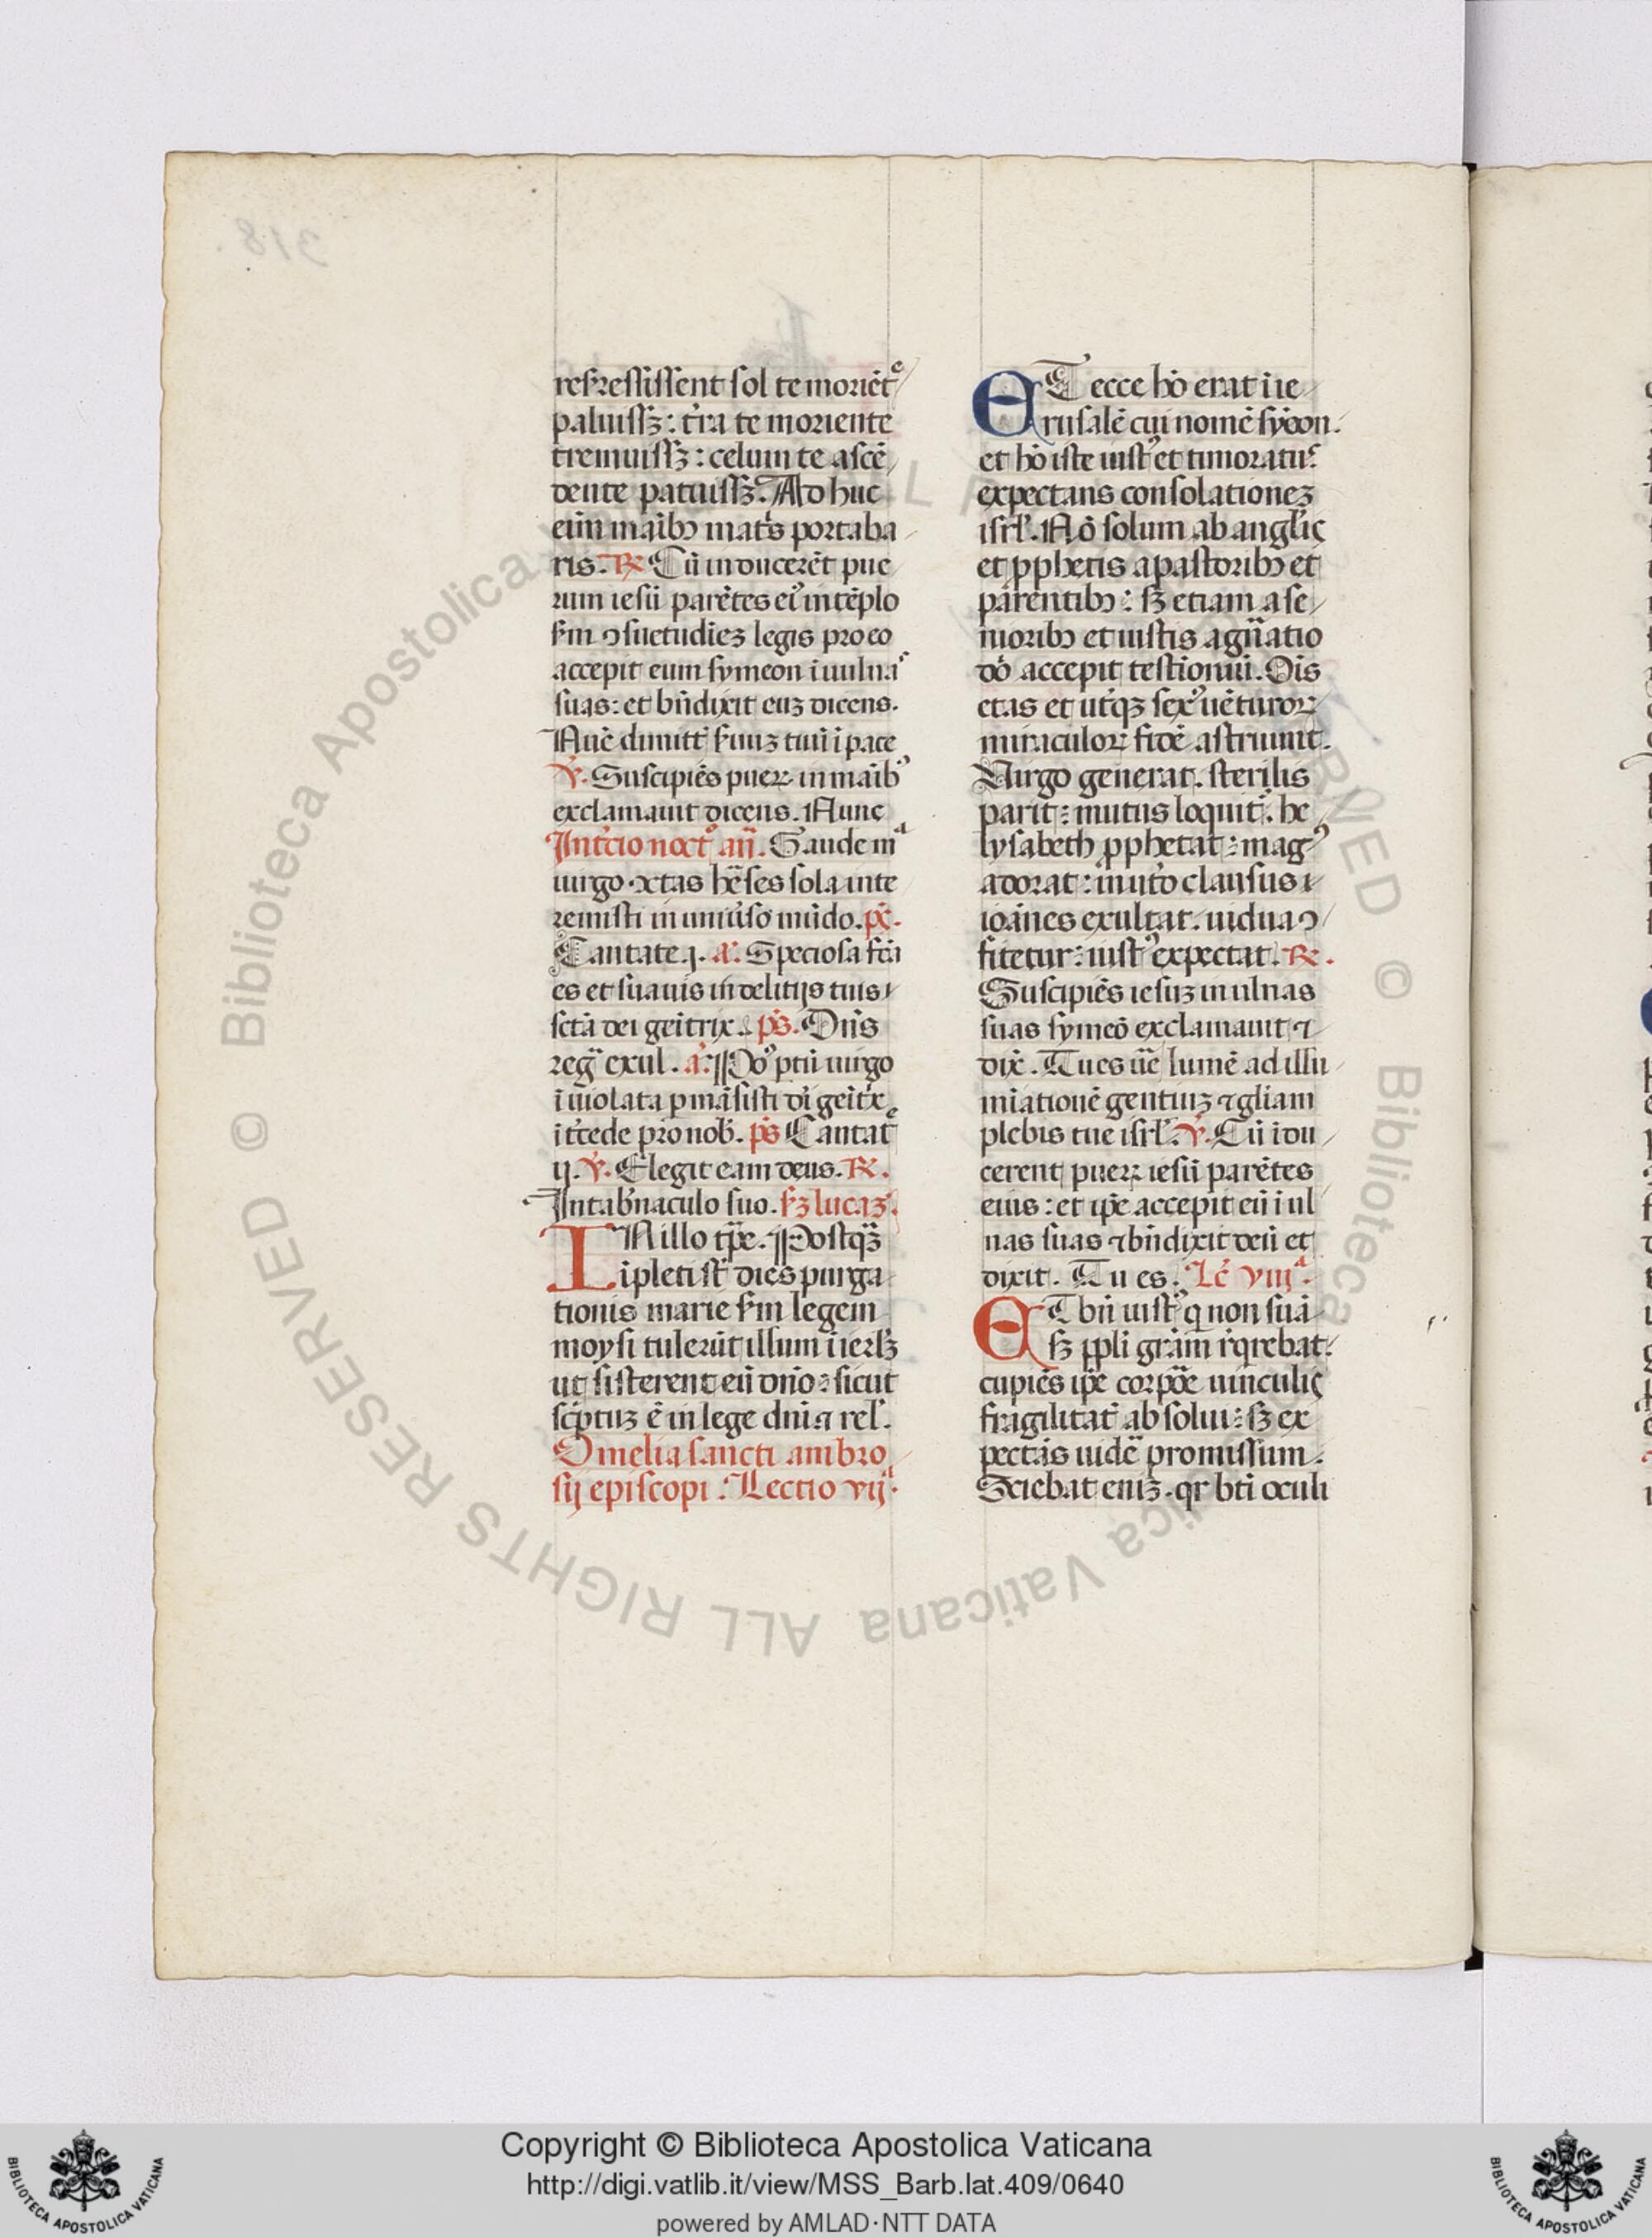 318.
resrestissent sol te moriēt
paluissꝫ: tr̄a te moriente
tremuissꝫ: celum te ascē
dente patuissꝫ. Ad huc
eīm maībꝫ mat's portaba
ris. ℞ Cū inducerēt pue
rum iesū parētes eiꝰ in tēplo
s̄m ꝯsuetudīeꝫ legis pro eo
accepit eum symeon ī ulnas
suas: et bn̄dixit euꝫ dicens.
Nūc dimitt' s'uuꝫ tuū ī pace
℣. Suscipiēs pueꝝ in maībꝰ
exclamauit dicens. Nunc
In t'cio noct' añ. Gaude mª
uirgo cūctas h'eses sola inte
remisti in uniu'so mūdo. ps̄.
Cantate.j. a'. Speciosa fcā
es et suauis in delitijs tuis
sctā dei geītrix. ps̄. Dn̄s
reg̃ exul. a'. Poꝰ ptū uirgo
ī uiolata pmāsisti dī geīt'x
īt'cede pro nob'. ps̄ Cantatͤ
ij. ℣. Elegit eam deus. ℞.
In tab'naculo suo. s̄ꝫ lucaꝫ.
IN illo tp̄e. Postqꝫ
īpleti st̄ dies purga
tionis marie s̄m legem
moysi tulerūt illum ī ierl̄ꝫ
ut sisterent eū dn̄o: sicut
sc'ptuꝫ ē in lege dn̄i ⁊ rel'.
Omelia sancti ambro
sij episcopi. Lectio vijª.
ET ecce hō erat ī ie
rusalē cui nomē syṁon.
et hō iste iustꝰ et timoratus
expectans consolationeꝫ
isrl'. Nō solum ab angl'ic
et p̱phetis a pastoribꝫ et
parentibꝫ: sꝫ etiam a se
nioribꝫ et iustis a gn̄atio
dō accepit testiōniū. Oīs
etas et ut'qꝫ sexꝰ uētuꝛoꝝ
miraculoꝝ fidē astriunt.
Virgo generat. sterilis
parit: mutus loquit'. he
lysabeth p̱phetat: magꝰ
adorat: inut'o clausus
ioānes exultat. uidua ꝯ
fitetur: iustꝰ expectat. ℞.
Suscipiēs iesuꝫ in ulnas
suas symeō exclamauit ⁊
dix̄. Tu es ūe lumē ad illu
miationē gentiuꝫ ⁊ gl̄iam
plebis tue isrl'. ℣. Cū īdu
cerent pueꝝ iesū parētes
eius: et ip̄e accepit eū ī ul
nas suas ⁊ bn̄dixit deū et
dixit. Tu es. Lc̄ viijª.
ET bn̄ iustꝰ q non suā
sꝫ pp̱li grām r̄qrebat.
cupiēs ip̄e corpōe uinculis
fragilitat' absolui: sꝫ ex
pectās uidē promissum.
Sciebat eniꝫ. qꝛ bt̄i oculi
© Biblioteca Apostolica Vaticana ALL RIGHTS RESERVED © Biblioteca Apostolica Vaticana ALL RIGHTS RESERVED
Copyright © Biblioteca Apostolica Vaticana
http://digi.vatlib.it/view/MSS_Barb.lat.409/0640
powered by AMLAD·NTT DATA
BIBLIOTECA APOSTOLICA VATICANA
BIBLIOTECA APOSTOLICA VATICANA